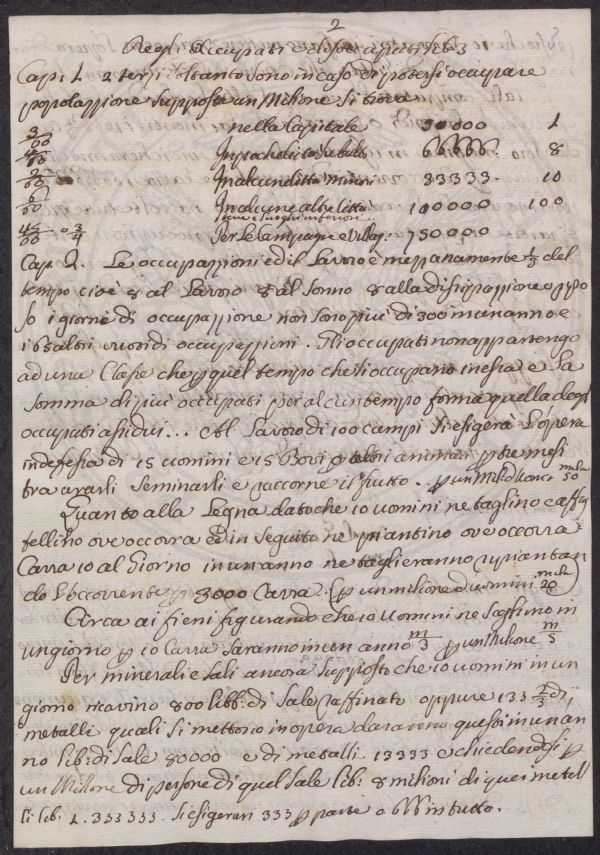 2
Degli Occupati e disoccupati Lib. 3
Cap. 1. 2 terzi soltanto sono in caso di potersi occupare
popolazzione supposta un Milione si trova
3/60 nella Capitale 50000 1
In poche altre Città 66666 8
2/60 In alcun di Città Minori 33333. 10
6/60 In alcune altre Città 100000 100
terre e luoghi inferiori
45/60 o 3/4 Per le Campagne e Villag: 750000
Cap. 2. Le occupazzioni ed il Lavoro è mezzanamente 1/3 del
tempo cioè 8 al Lavoro 8 al Sonno 8 alla dissipazzione o ripo
so i giorni di occupazzione non sono più di 300 in un anno e
i 65 altri vuoti di occupazzioni. Gli occupati non appartengo
ad una Classe che p quel tempo che si occupano in essa e la
Somma di più occupati per alcun tempo forma quella degl
occupati assidui... Al Lavoro di 100 campi si esigerà l'opera
indefessa di 15 uomini e 15 Bovi o altri animali p tre mesi
tra ararli Seminarli e raccorne il frutto. p un mil: d'uomi: mila/50
Quanto alla Legna dato che 10 uomini ne taglino e aff
tellino ove occorra ed in seguito ne piantino ove occorra
Carra 10 al Giorno in un anno ne taglieranno ripiantan
do l'occorrente p 3000 Carra. (p un milione d'uomini mila/20)
Circa ai fieni figurando che 10 uomini ne seghino in
un giorno p 10 Carra saranno in un anno m/3 p un Milione m/5
Per minerali e sali ancora supposto che 10 uomini in un
giorno ricavino 800 libb: di Sale raffinato oppure 133 2/3 di
metalli quali si mettono in opera daranno questi in un an
no lib: di Sale 80000 e di metalli 13333 e chiedendosi p
un Milione di persone di quel sale lib: 8 milioni di quei metal
li lib: 1.333333. si esigeran 333 p parte o 666 in tutto.